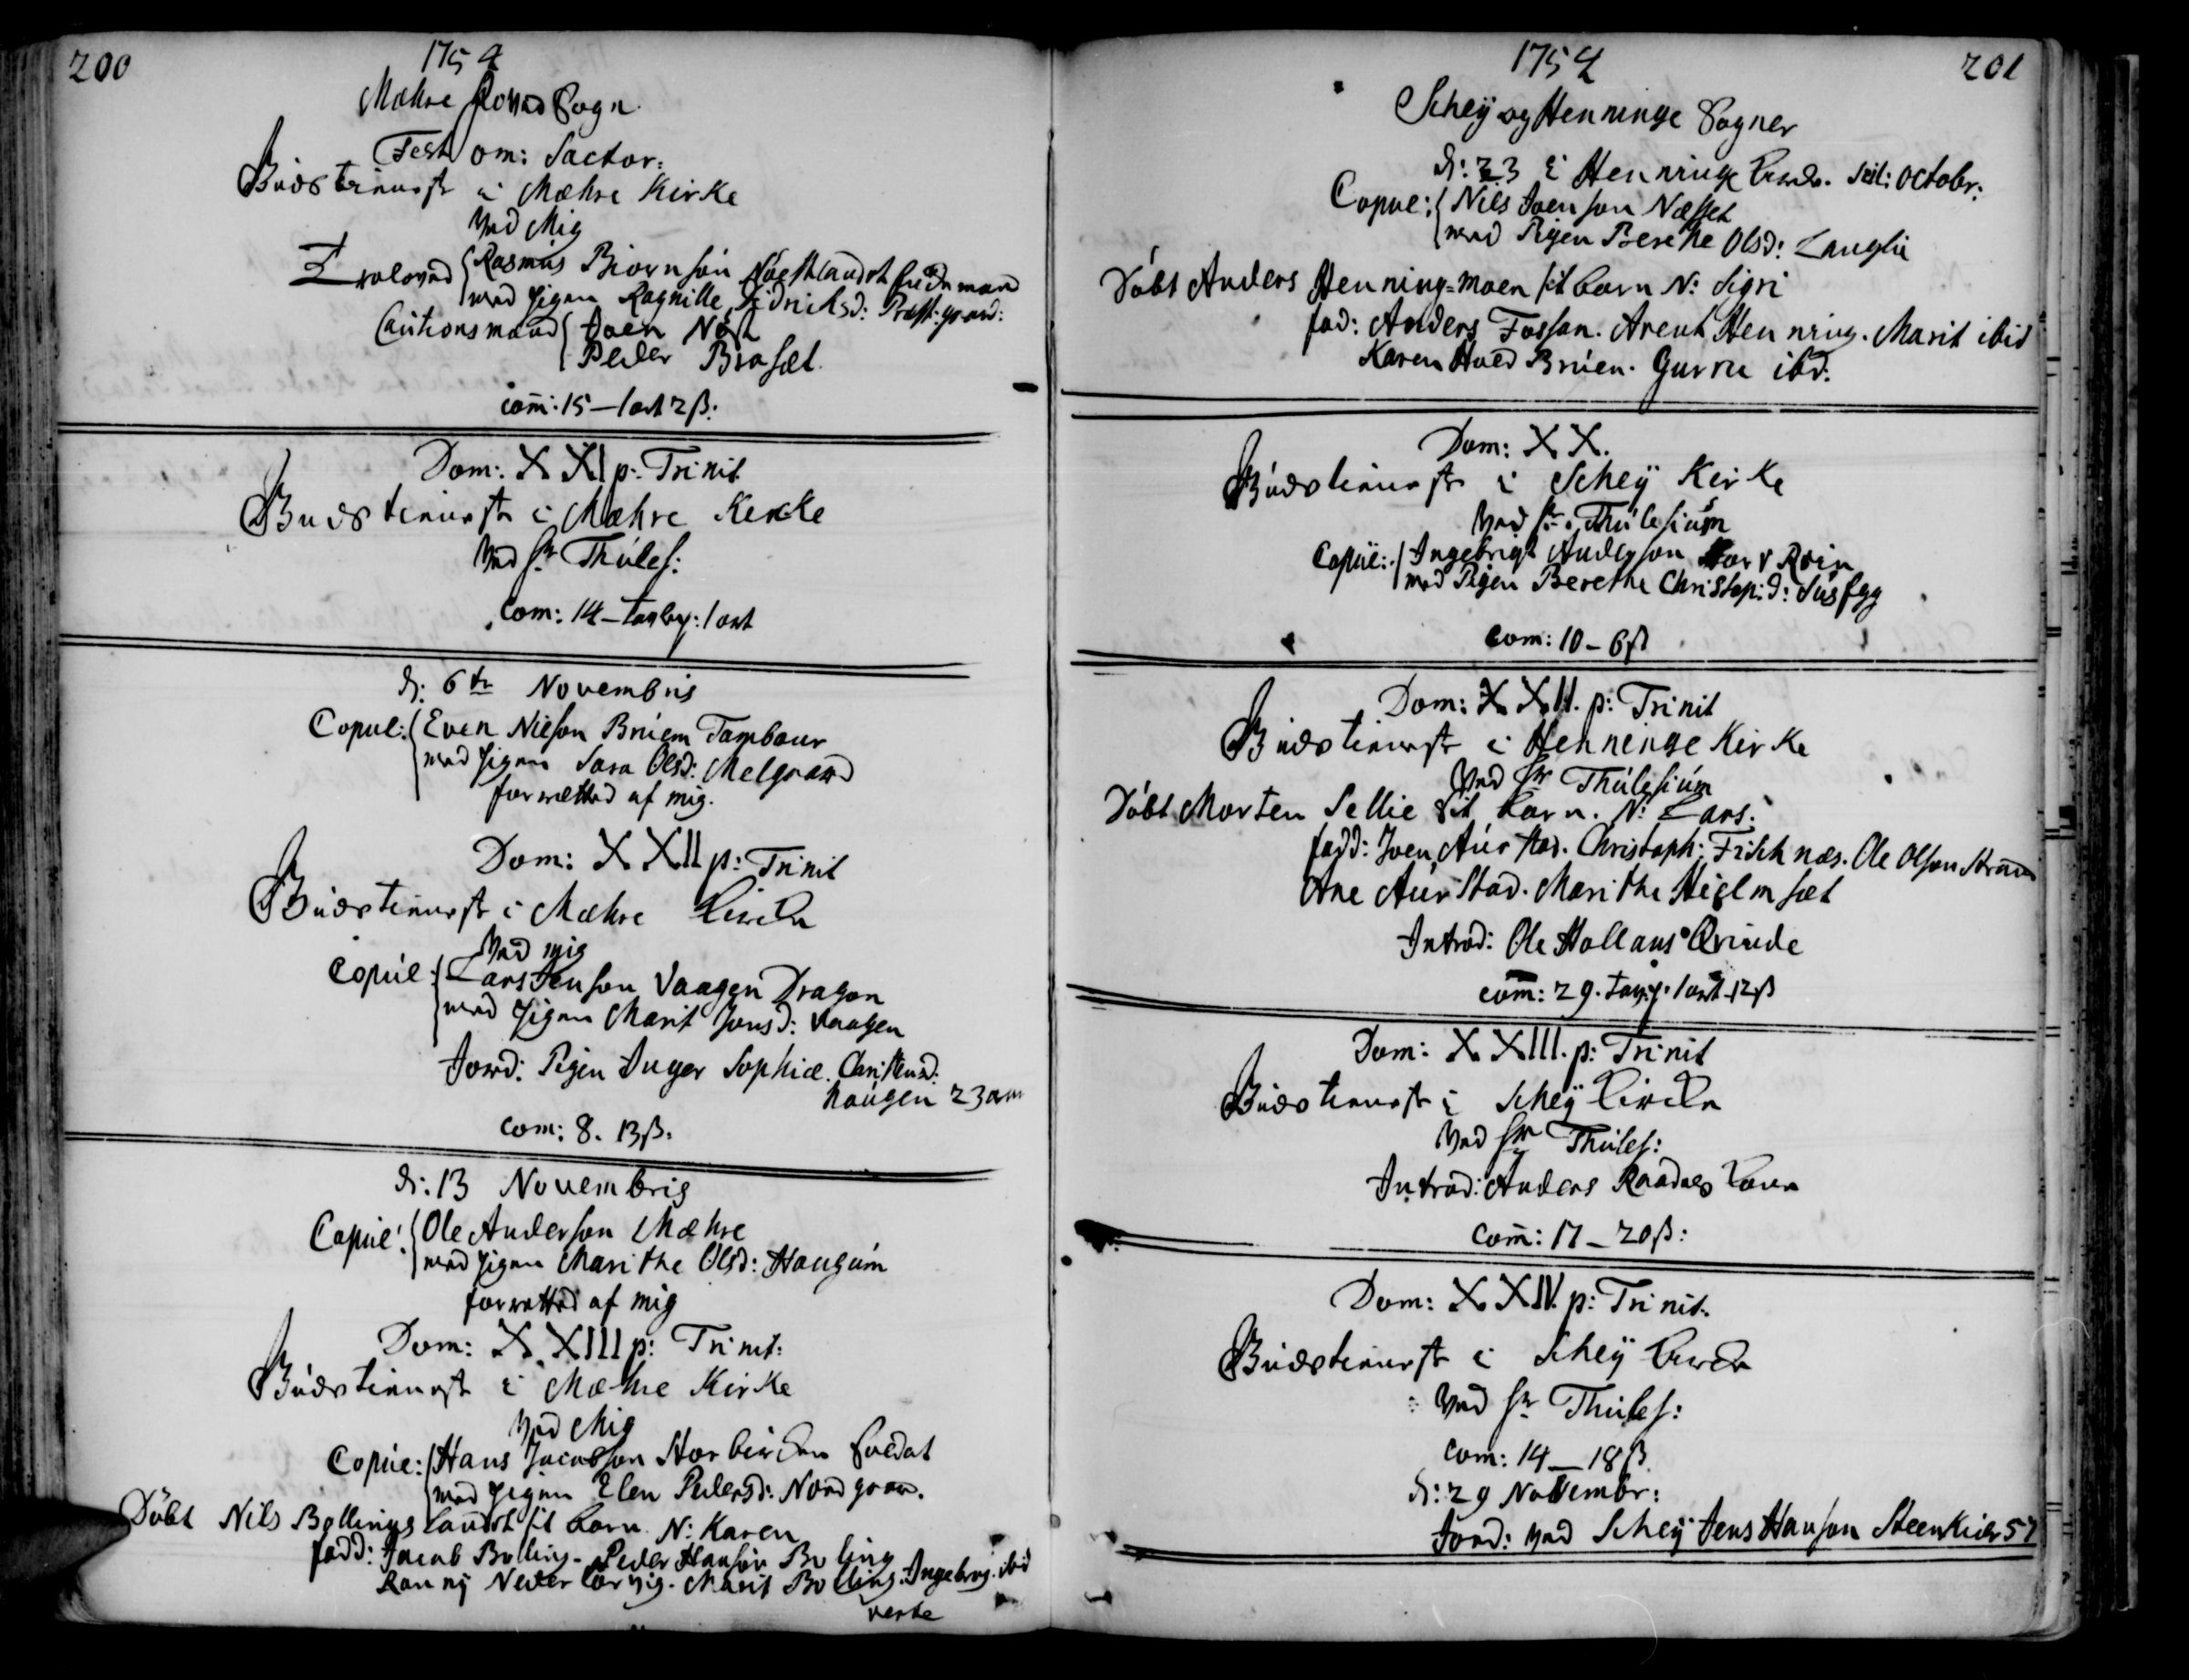 200
1754
Mæhre Hoved Sogn.
Fest om: Sactor:
Gudstienest i Mæhre Kirke
Ved Mig
Troloved Rasmus Biørnsøn Landt
med Pigen Ragnille Didrichsd: Præst:gaard:
Cautionsmænd Joen Nøst
Peder Brasæt.
com: 15 – 1 ort 2 ß:
Dom: XXI p: Trinit.
Gudstienest i Mæhre Kerke
Ved Hr Thúles:
Com: 14 – : 1 ort
d: 6te Novembris
Copul: Even Nielson Brúem Tambour
med Pigen Sara Olsd: Melgaard
forrættet af mig.
Dom: XXII p: Trinit
Gudstienest i Mæhre Kirke
Ved mig
Copúl: Lars Jenson Vaagen Dragon
med Pigen Marit Jonsd: Vaagen
Jord: Pigen Inger Sophiæ Christensd:
haúgen 23 aar
Com: 8. 13 ß.
d: 13 Novembris
Copúl: Ole Anderson Mæhre
med Pigen Marithe Olsd: Haugúm
forrettet af mig
Dom: XXIII p: Trinit:
Gudstienest i Mæhre Kirke
Ved Mig
Copúl: Hans Jacobson Stor Soldat
med Pigen Elen Pedersd: Nordgaar.
Døbt Nils Bøllings sit barn N: Karen
fadd: Jacob Bølling. Peder Hansøn Bøling
Ranny Neder . Marit Bølling. Ingebrog. ibid
verte
1754
201
Scheÿ og Henninge Sogner
d: 23 i Henninge Kirke. Scil: Octobr:
Copul: Nils Joenson Næsset
med Pigen Berethe Olsd: Langlie
Døbt Anders Henning=moen sit barn N: Sigri
fad: Anders Fossan. Arent Henning. Marit ibid
Karen Brúen. Gurru ibd:
Dom: XX.
Gúdstienest i Scheÿ Kirke
Ved Hr. Thúlesiúm
Copúl: Ingebrigt Anderson
med Pigen Berethe Christop:d: Súsegg
Com: 10 – 6 ß
Dom: XXII. p: Trinit
Gudstienest i Henninge Kirke
Ved Hr Thúlesiúm
Døbt Morten Sellie sit barn. N: Lars.
fadd: Joen Aúrstad. Christoph: Fisknæs. Ole Olson
Ane Aúrstad. Marithe Hielmsæt
Introd: Ole Hollans Qvinde
com: 29. : 1 ort 12 ß
Dom: XXIII. p: Trinit
Gudstienest i Scheÿ Kirke
Ved Hr Thúles:
Introd: Anders Raadnes kone
Com: 17 – 20 ß:
Dom: XXIV. p: Trinit.
Gúdstienest i Scheÿ Kirke
Ved Hr Thúles:
Com: 14 – 18 ß
d: 29 Novembr:
Jord: ved Scheÿ Jens Hanson Steenkier 57